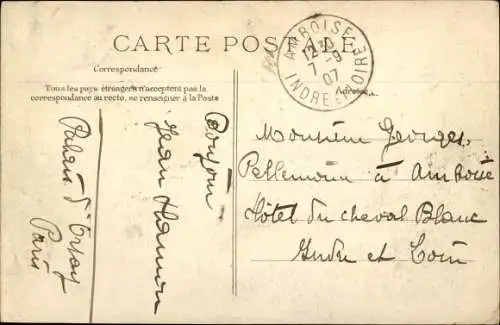 CARTE POSTALE
Correspondance
Tous les pays étrangers n'acceptent pas la
correspondance au recto, se renseigner à la Poste
Adresse
AMBOISE
12 30
7 -9
07
INDRE ET LOIRE
Bonjour
Jean
Palais d'Orsay
Paris
Monsieur Georges
à Amboise
Hôtel du cheval Blanc
Indre et Loire